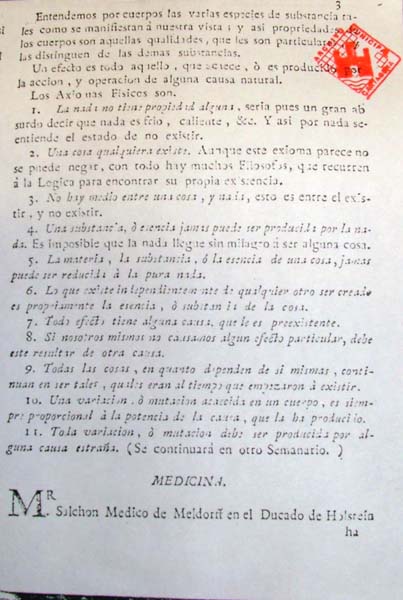 3
Entendemos por cuerpos las varias especies de substancia ta-
les como se manifiestan à nuestra vista; y asi propiedades
los cuerpos son aquellas qualidades, que les son particular
las distinguen de las demas substancias.
Un efecto es todo aquello, que acaece, ò es producido por
la accion, y operacion de alguna causa natural.
Los Axiomas Fisicos son.
1. La nada no tiene propiedad alguna, seria pues un gran ab
surdo decir que nada es frio, caliente, &c. Y asi por nada se
entiende el estado de no existir.
2. Una cosa qualquiera existe. Aunque este exioma parece no
se puede negar, con todo hay muchos Filosofos, que recurren
á la Logica para encontrar su propia existencia.
3. No hay medio entre una cosa, y nada, esto es entre el exîs-
tir, y no existir.
4. Una substancia, ò esencia jamas puede ser producida por la na-
da. Es imposible que la nada llegue sin milagro á ser alguna cosa.
5. La materia, la substancia, ó la esencia de una cosa, jamas
puede ser reducida á la pura nada.
6. Lo que existe independientemente de qualquier otro ser creado
es propriamente la esencia, ò substancia de la cosa.
7. Todo efecto tiene alguna causa, que le es preexistente.
8. Si nosotros mismos no causamos algun efecto particular, debe
este resultar de otra causa.
9. Todas las cosas, en quanto dependen de sì mismas, conti-
nuan en ser tales, quales eran al tiempo que empezaron à existir.
10. Una variacion, ò mutacion acaecida en un cuerpo, es siem-
pre proporcional á la potencia de la causa, que la ha producido.
11. Toda variacion, ò mutacion debe ser producida por al-
guna causa estraña. (Se continuará en otro Semanario.)
MEDICINA.
MR. Salchon Medico de Meldorff en el Ducado de Holstein
ha